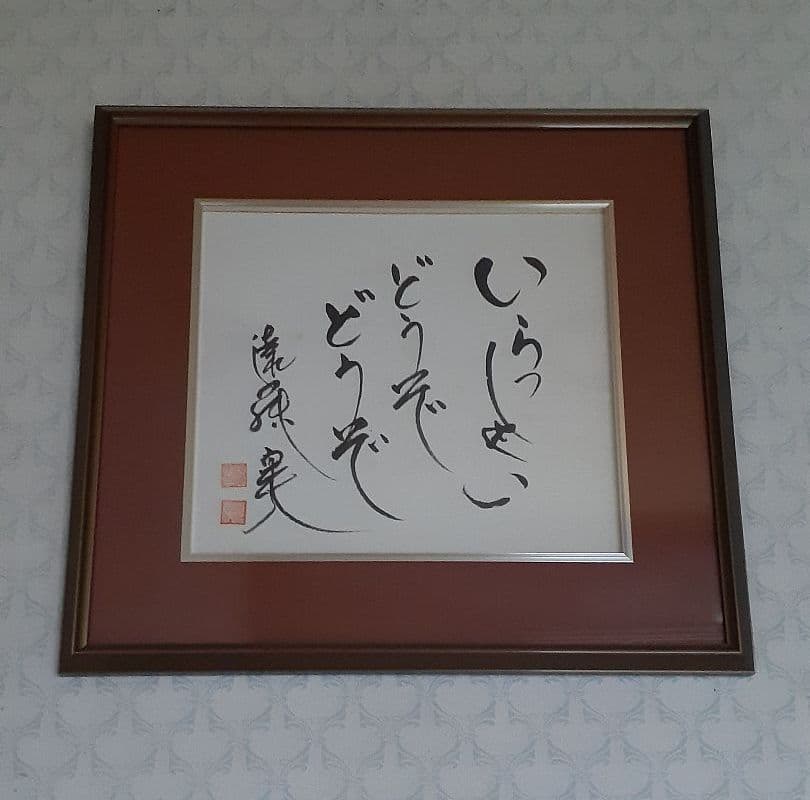 いらっしゃい
どうぞ
どうぞ
遠藤実